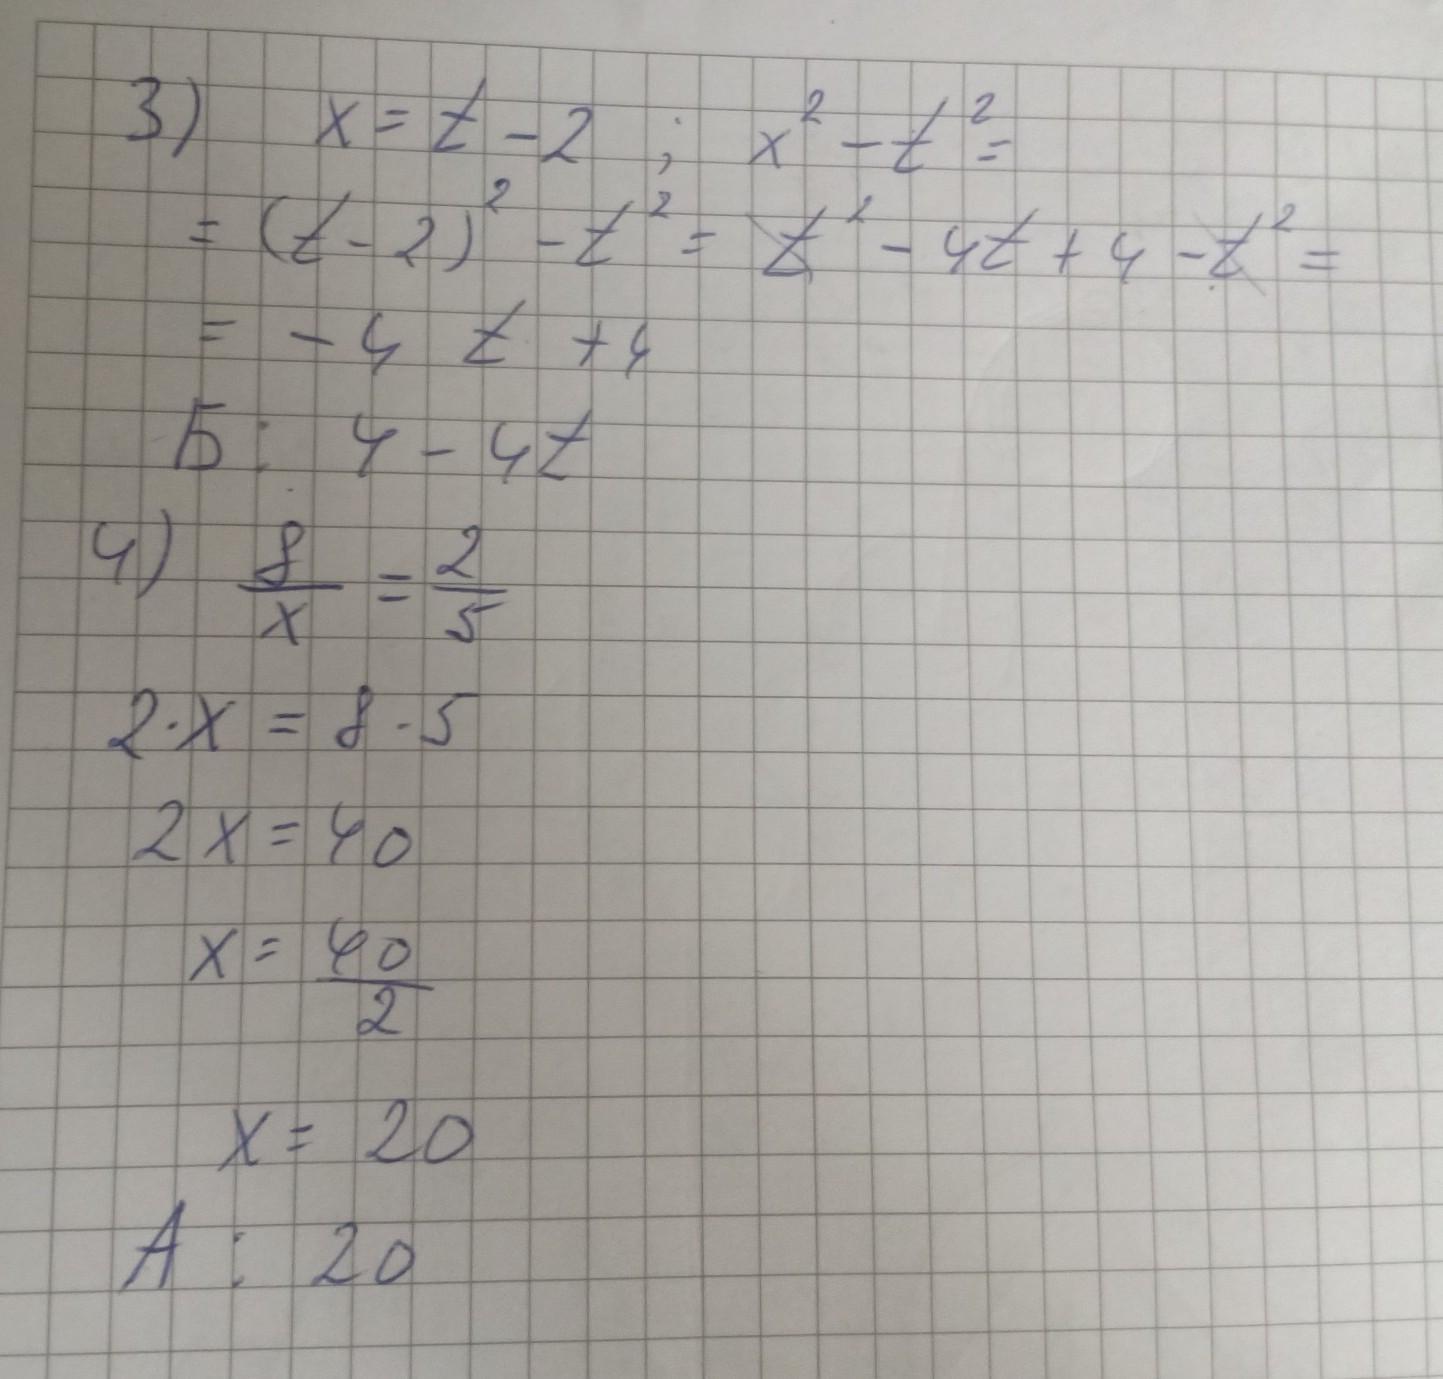 3) x = t - 2 ; x² - t² =
= (t - 2)² - t² = t² - 4t + 4 - t² =
= - 4 t + 4
Б: 4 - 4t
4) 8/x = 2/5
2·x = 8·5
2x = 40
x = 40/2
x = 20
А: 20